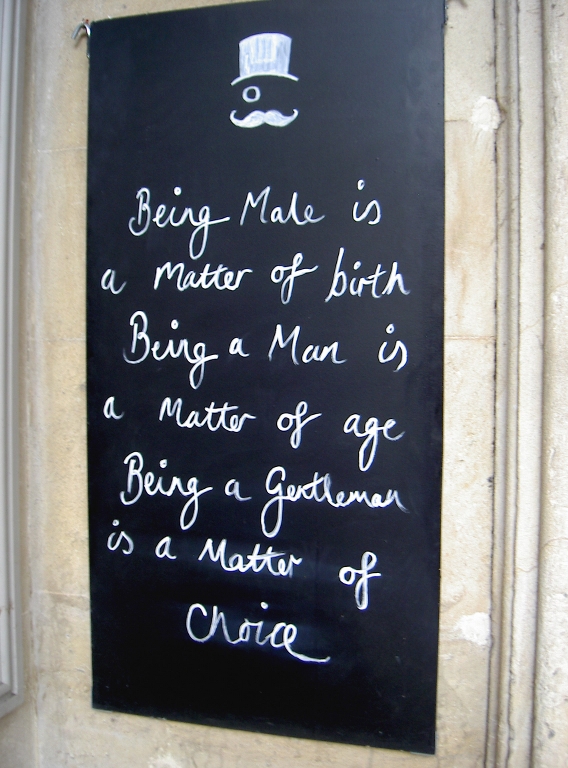 Being Male is
a Matter of birth
Being a Man is
a Matter of age
Being a Gentleman
is a Matter of
Choice